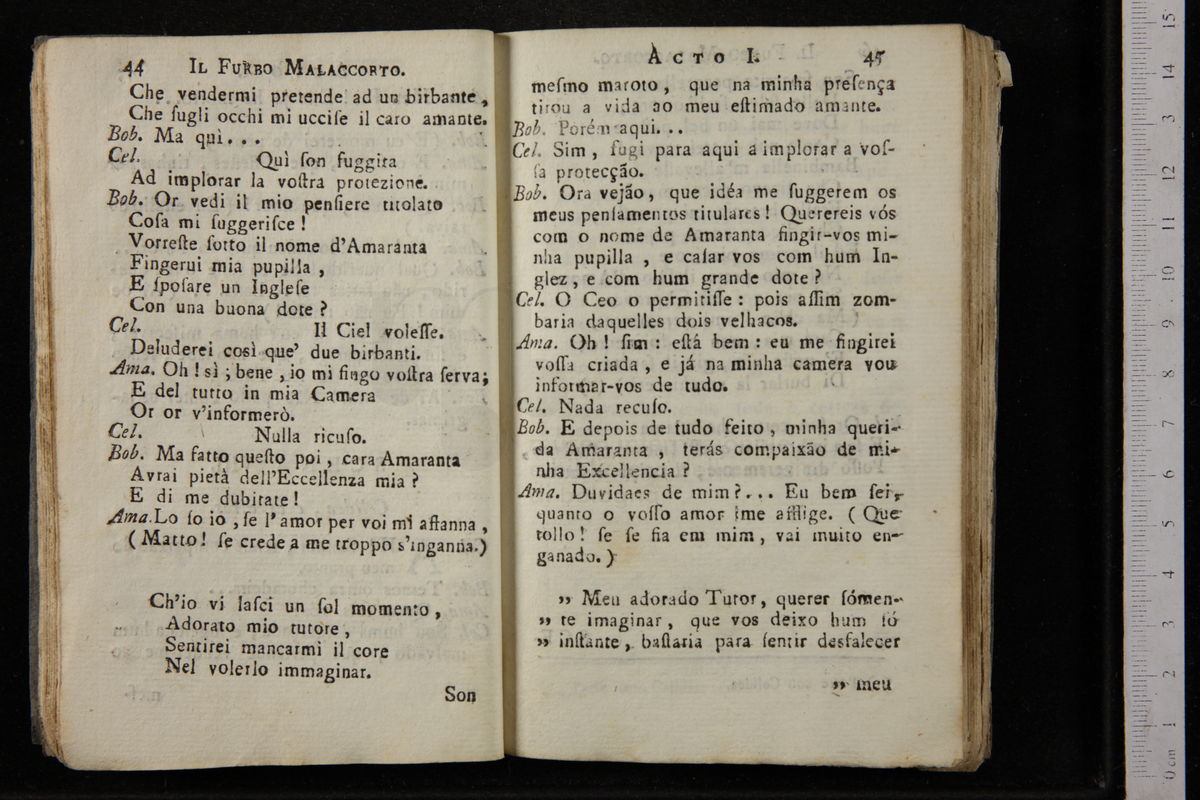 44 IL FURBO MALACCORTO.
Che vendermi pretende ad un birbante,
Che ſugli occhi mi ucciſe il caro amante.
Bob. Ma quì...
Cel. Quì ſon fuggita
Ad implorar la voſtra protezione.
Bob. Or vedi il mio penſiere titolato
Coſa mi ſuggeriſce!
Vorreſte ſotto il nome d'Amaranta
Fingerui mia pupilla,
E ſpoſare un Ingleſe
Con una buona dote?
Cel. Il Ciel voleſſe.
Deluderei così que' due birbanti.
Ama. Oh! sì; bene, io mi fingo voſtra ſerva;
E del tutto in mia Camera
Or or v'informerò.
Cel. Nulla ricuſo.
Bob. Ma fatto queſto poi, cara Amaranta
Avrai pietà dell'Eccellenza mia?
E di me dubitate!
Ama. Lo ſo io, ſe l'amor per voi mi affanna,
(Matto! ſe crede a me troppo s'inganna.)
Ch'io vi laſci un ſol momento,
Adorato mio tutore,
Sentirei mancarmi il core
Nel volerlo immaginar.
Son
ACTO I. 45
meſmo maroto, que na minha preſença
tirou a vida ao meu eſtimado amante.
Bob. Porém aqui...
Cel. Sim, fugi para aqui a implorar a voſ-
ſa protecção.
Bob. Ora vejão, que idéa me ſuggerem os
meus penſamentos titulares! Querereis vós
com o nome de Amaranta fingir-vos mi-
nha pupilla, e caſar vos com hum In-
glez, e com hum grande dote?
Cel. O Ceo o permitiſſe: pois aſſim zom-
baria daquelles dois velhacos.
Ama. Oh! ſim: eſtá bem: eu me fingirei
voſſa criada, e já na minha camera vou
informar-vos de tudo.
Cel. Nada recuſo.
Bob. E depois de tudo feito, minha queri-
da Amaranta, terás compaixão de mi-
nha Excellencia?
Ama. Duvidaes de mim?... Eu bem ſei,
quanto o voſſo amor me afflige. (Que
tollo! ſe ſe fia em mim, vai muito en-
ganado.)
„ Meu adorado Tutor, querer ſómen-
„ te imaginar, que vos deixo hum ſó
„ inſtante, baſtaria para ſentir desfalecer
„ meu